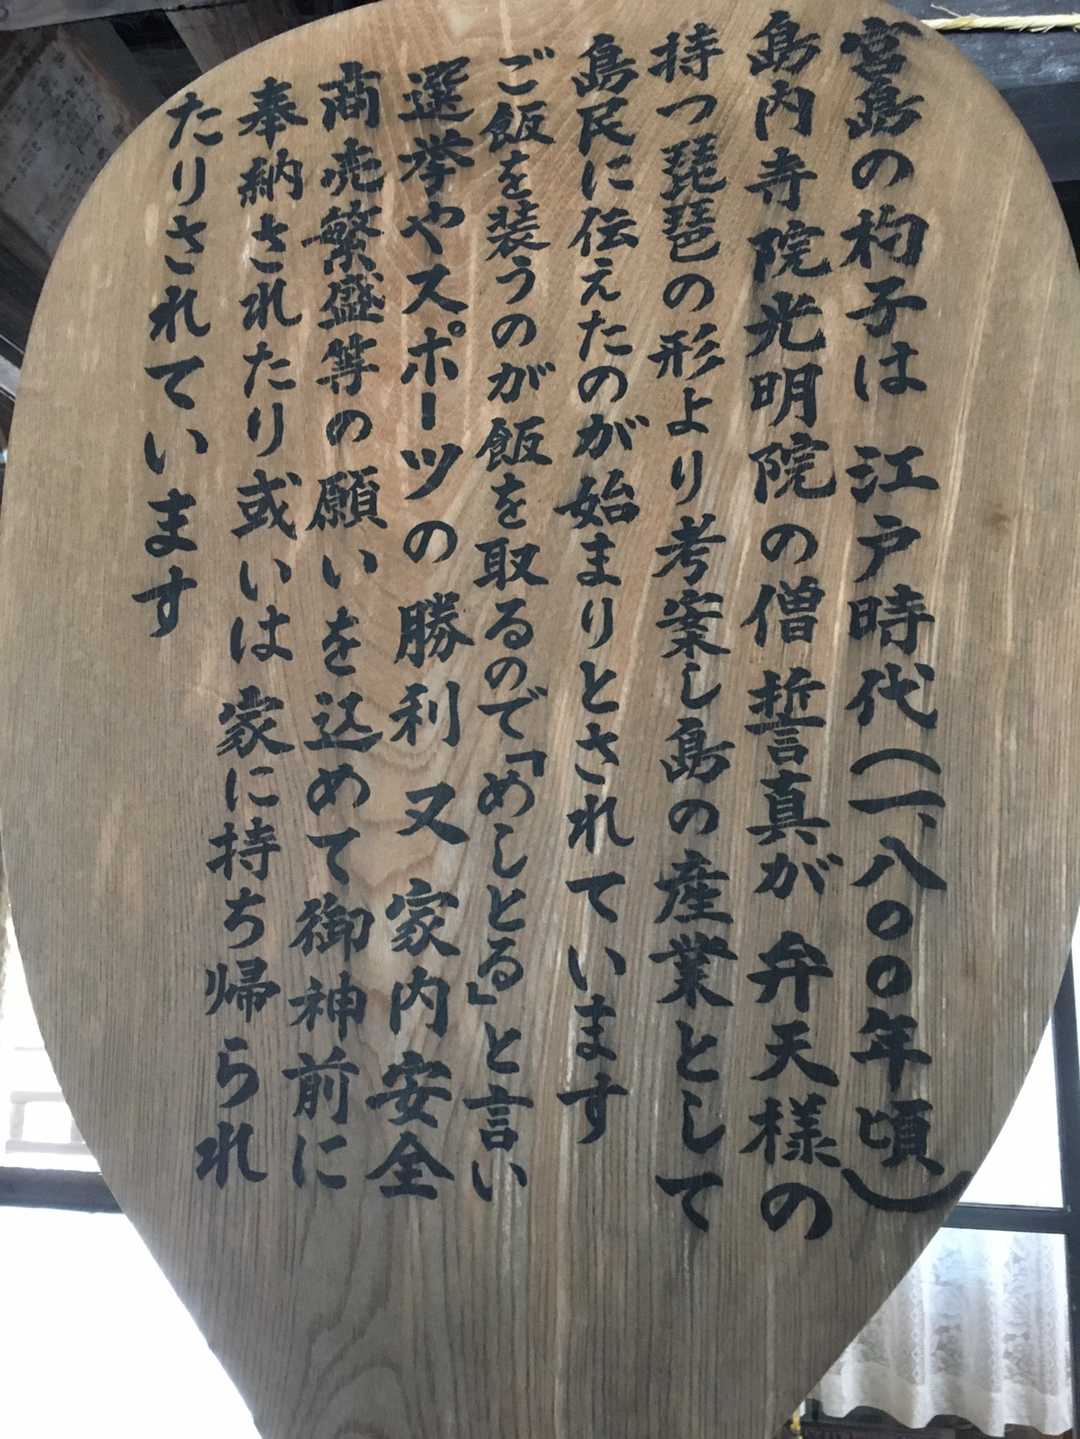 宮島の杓子は 江戸時代(一、八〇〇年頃)
島内寺院光明院の僧誓真が 弁天様の
持つ琵琶の形より考案し島の産業として
島民に伝えたのが始まりとされています
ご飯を装うのが飯を取るので「めしとる」と言い
選挙やスポーツの 勝利 又 家内安全
商売繁盛等の願いを込めて御神前に
奉納されたり或いは 家に持ち帰られ
たりされています